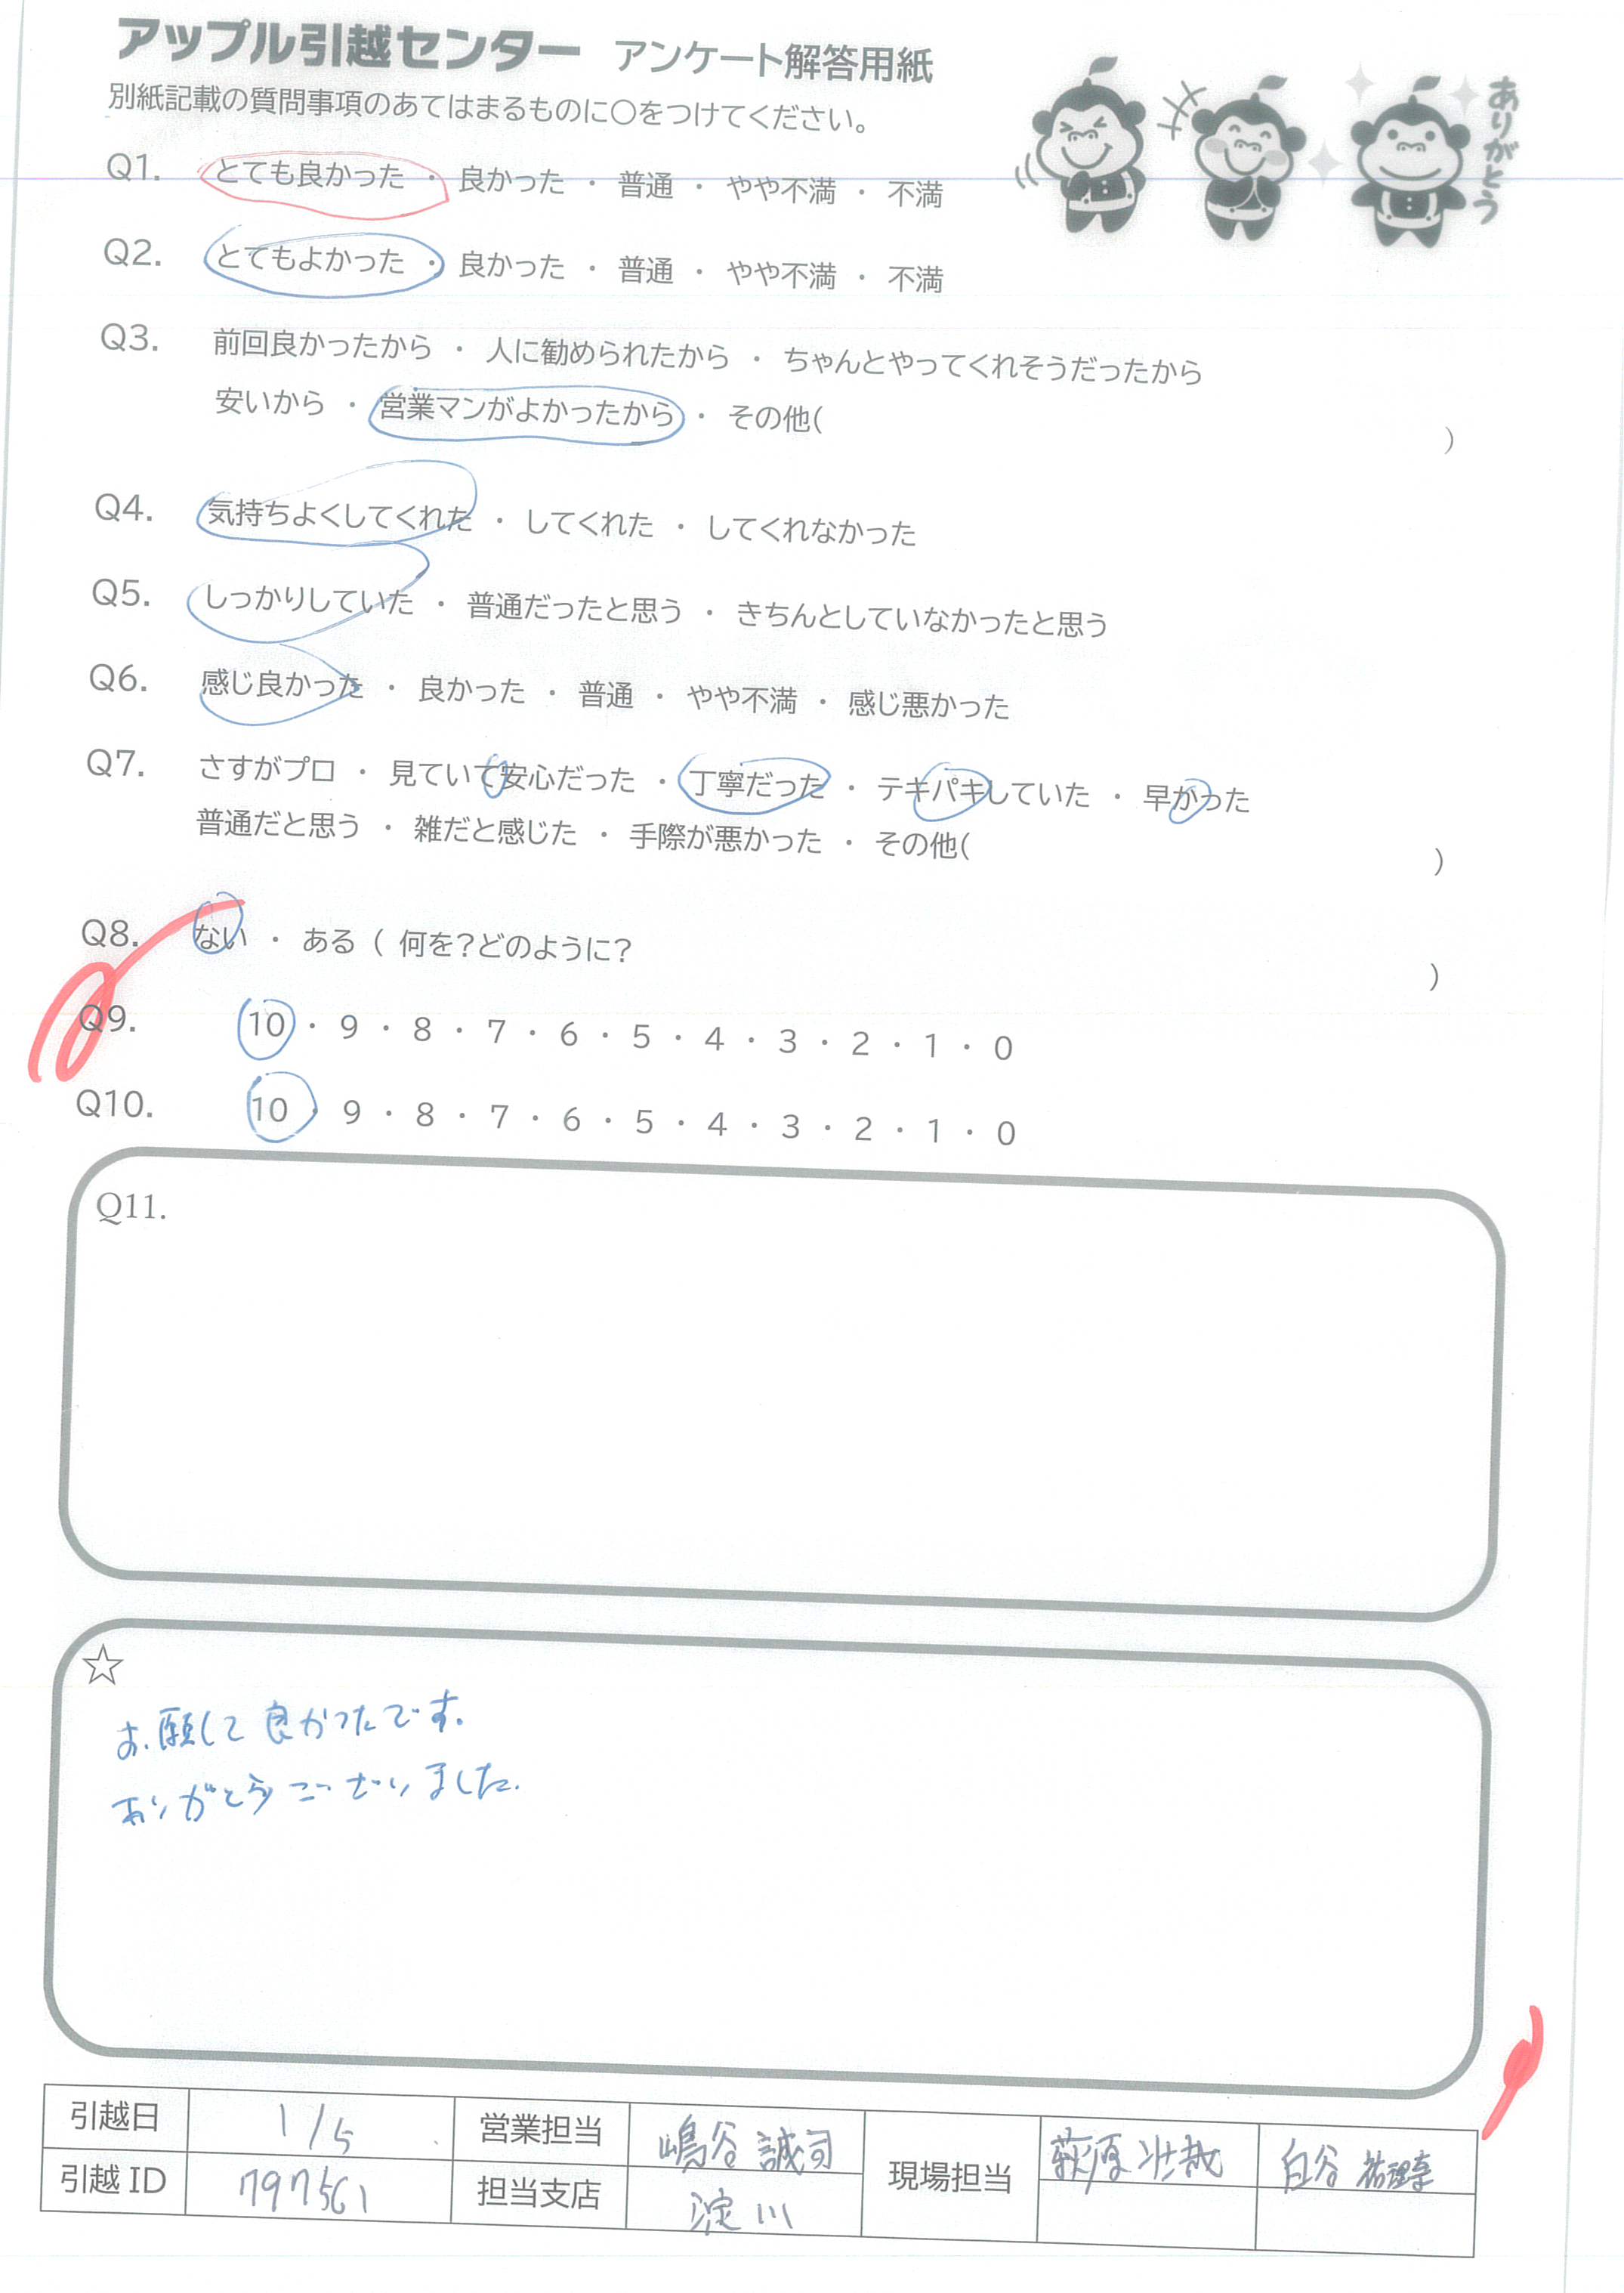 アップル引越センター アンケート解答用紙
別紙記載の質問事項のあてはまるものに〇をつけてください。
ありがとう
Q1. とても良かった ・ 良かった ・ 普通 ・ やや不満 ・ 不満
Q2. とてもよかった ・ 良かった ・ 普通 ・ やや不満 ・ 不満
Q3. 前回良かったから ・ 人に勧められたから ・ ちゃんとやってくれそうだったから
安いから ・ 営業マンがよかったから ・ その他( )
Q4. 気持ちよくしてくれた ・ してくれた ・ してくれなかった
Q5. しっかりしていた ・ 普通だったと思う ・ きちんとしていなかったと思う
Q6. 感じ良かった ・ 良かった ・ 普通 ・ やや不満 ・ 感じ悪かった
Q7. さすがプロ ・ 見ていて安心だった ・ 丁寧だった ・ テキパキしていた ・ 早かった
普通だと思う ・ 雑だと感じた ・ 手際が悪かった ・ その他( )
Q8. ない ・ ある ( 何を?どのように? )
Q9. 10 ・ 9 ・ 8 ・ 7 ・ 6 ・ 5 ・ 4 ・ 3 ・ 2 ・ 1 ・ 0
Q10. 10 ・ 9 ・ 8 ・ 7 ・ 6 ・ 5 ・ 4 ・ 3 ・ 2 ・ 1 ・ 0
Q11.
☆
お願して良かったです。
ありがとうございました。
引越日 1/5 営業担当 嶋谷 誠司 現場担当 萩原 壮哉 白谷 祐理幸
引越 ID 797561 担当支店 淀川